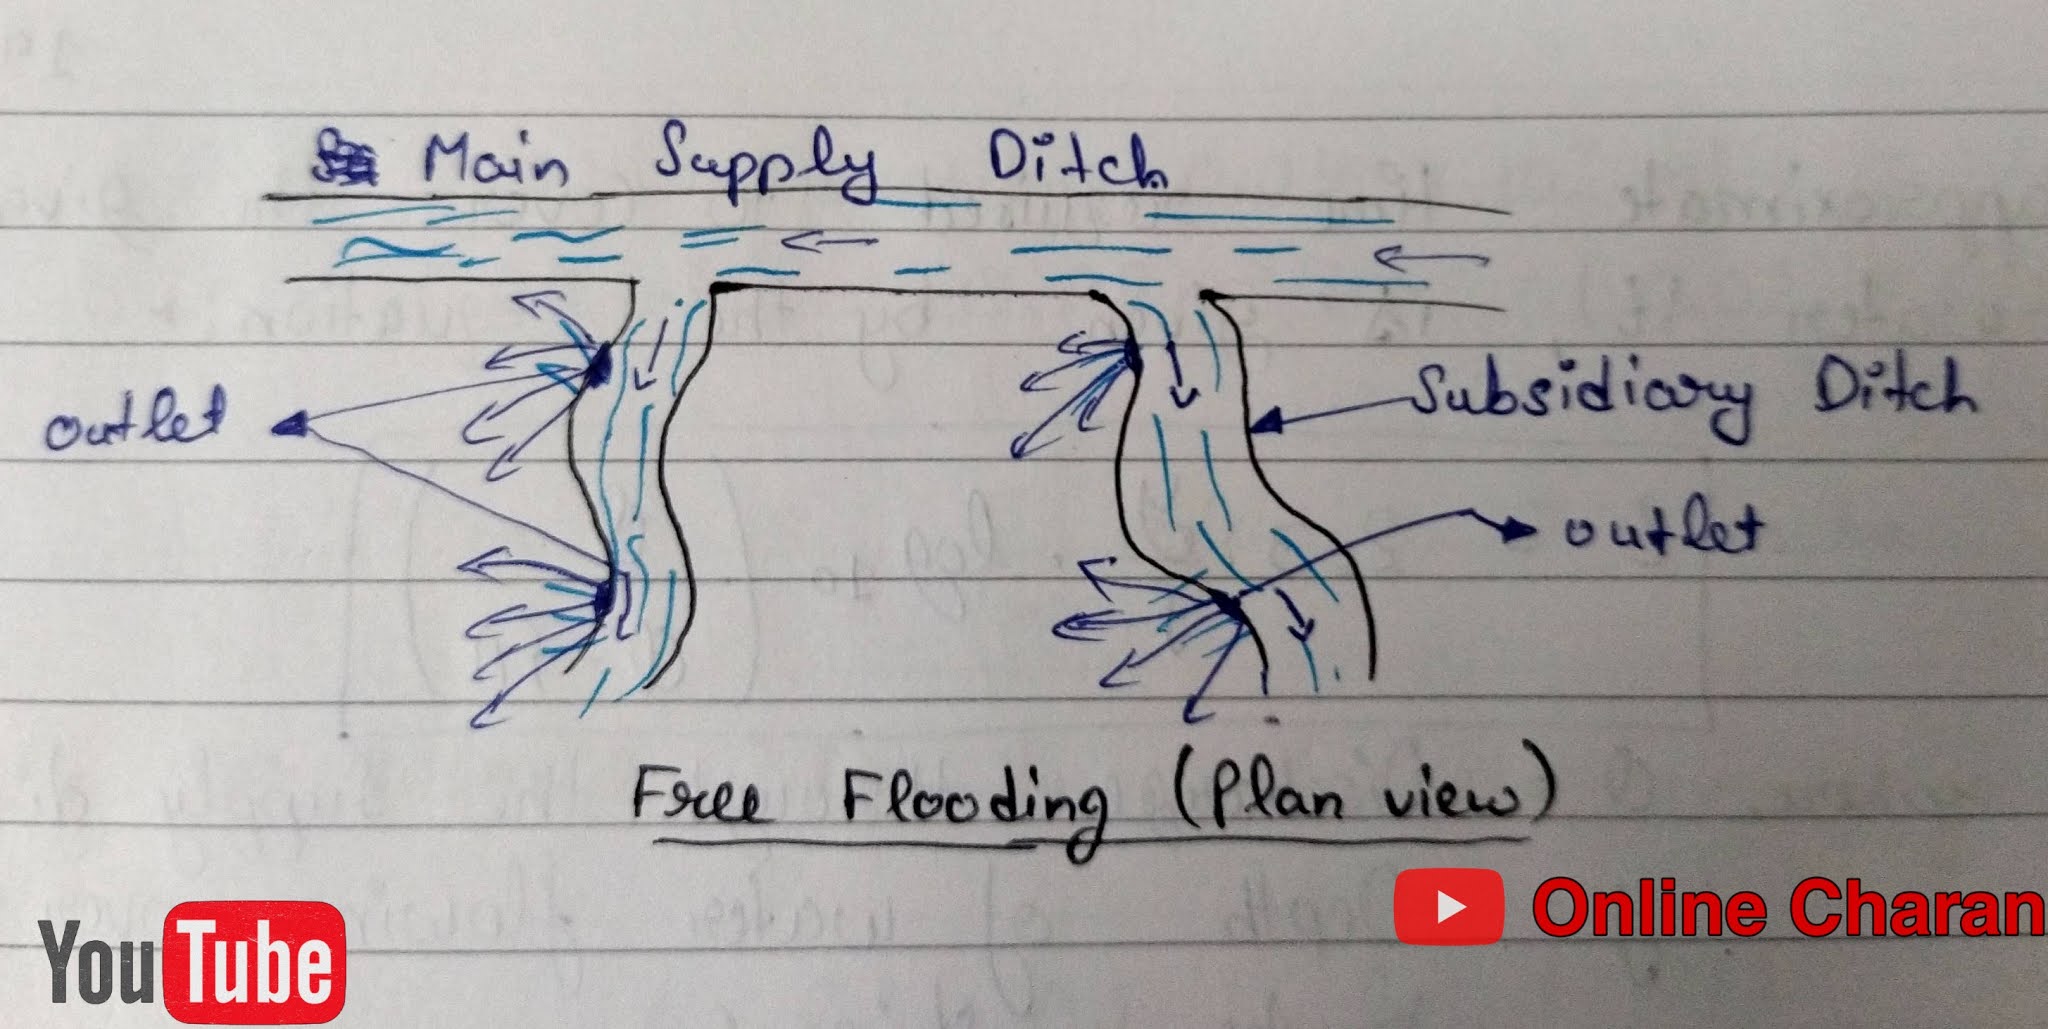 Main Supply Ditch
outlet
Subsidiary Ditch
outlet
Free Flooding (Plan view)
YouTube
Online Charan